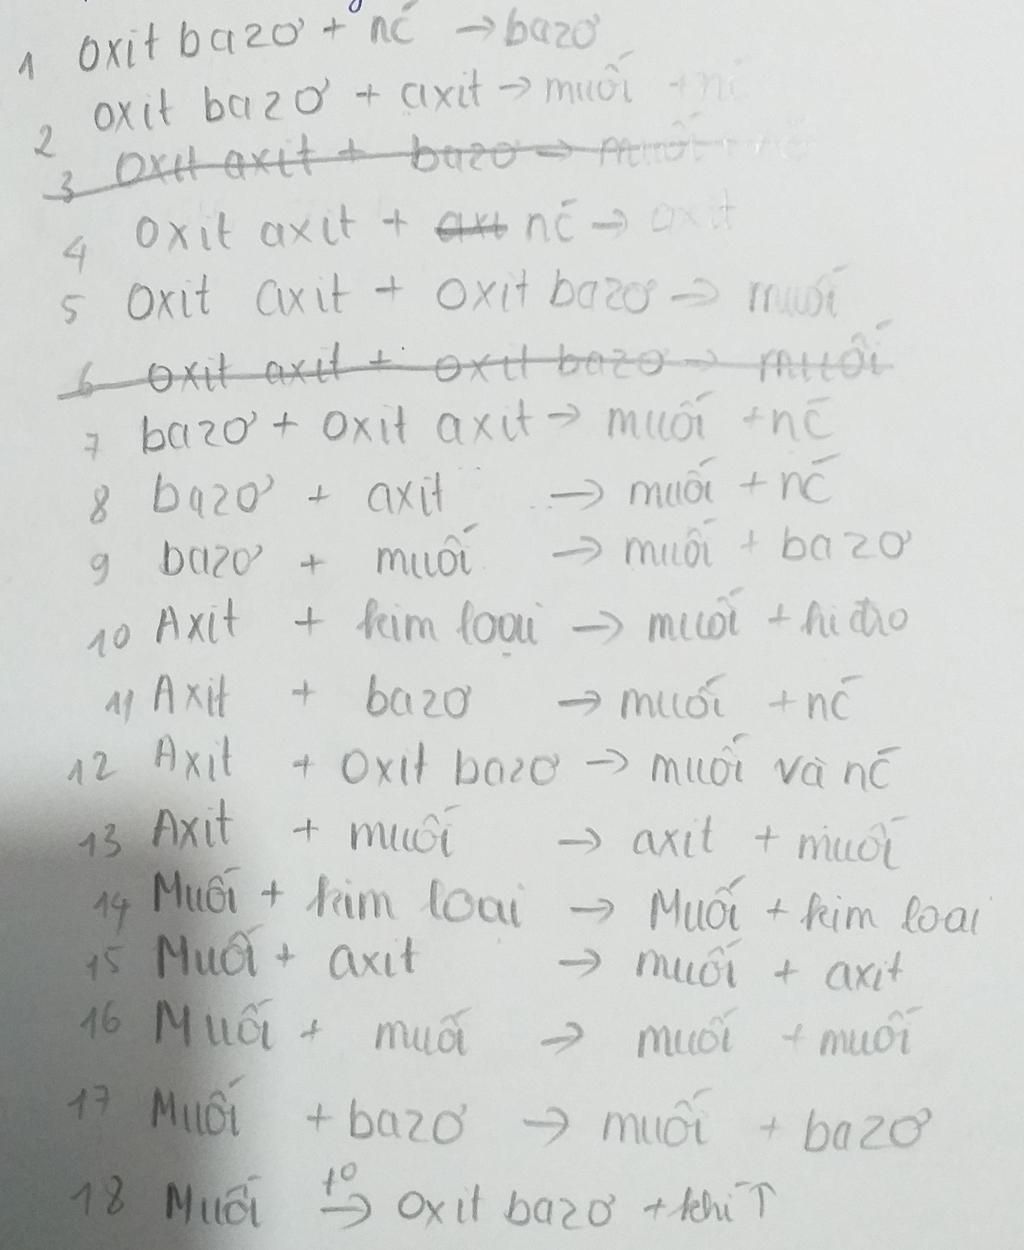 1 Oxit bazơ + nc → bazơ
2 oxit bazơ + axit → muối + nc
3 Oxit axit + bazo → muối + nc
4 Oxit axit + axt nc → axit
5 Oxit axit + Oxit bazơ → muối
6 oxit axit + oxit bazo → muối
7 bazơ + oxit axit → muối + nc
8 bazơ + axit → muối + nc
9 bazơ + muối → muối + bazơ
10 Axit + kim loại → muối + hiđro
11 Axit + bazơ → muối + nc
12 Axit + Oxit bazơ → muối và nc
13 Axit + muối → axit + muối
14 Muối + kim loai → Muối + kim loai
15 Muối + axit → muối + axit
16 Muối + muối → muối + muối
17 Muối + bazơ → muối + bazơ
18 Muối t° → Oxit bazơ + khí ↑